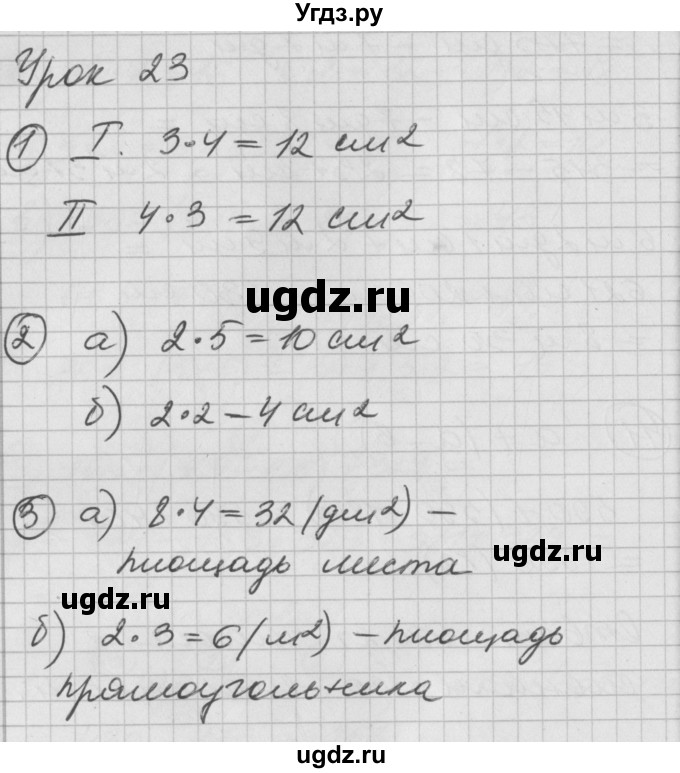 Угдз.ру
Урок 23
1 I. 3·4=12 см2
II 4·3=12 см2
ugdz.ru
2 а) 2·5=10 см2
б) 2·2-4 см2
3 а) 8·4=32 (дм2) –
ugdz.ru
площадь листа
ugdz.ru
б) 2·3=6 (м2) – площадь
прямоугольника
ugdz.ru